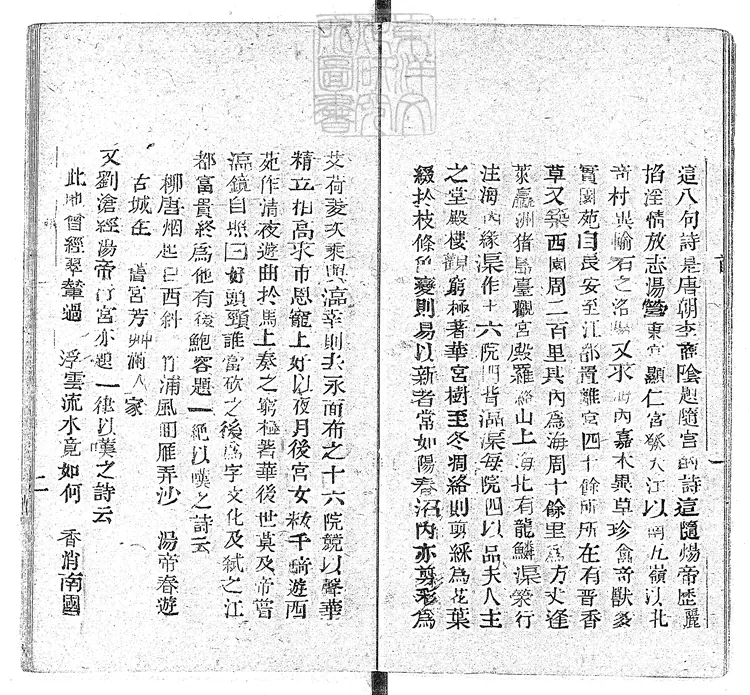 這八句詩是唐朝李商陰題隨宮的詩這隨煬帝歷麗
掐淫情放志湯營東京顯仁宮發大江以南五嶺以北
奇村異輸石之洛陽又求海內嘉木異草珍禽奇獸多
實園苑自長安至江都置離宮四十餘所所在有晋香
草又築西園周二百里其內為海周十餘里為方丈逢
萊瀛洲猪島臺觀宮殿羅絡山上海北有龍鱗渠縈行
注海內緣渠作十六院門皆濕渠每院四以品夫人主
之堂殿樓觀窮極著華宮樹至冬凋絡則剪綵為花葉
綴扵枝條色變則易以新者常如陽春沼內亦剪彩為
芰荷菱次乘輿滆幸則去氷面布之十六院競以聲華
精立相高求市恩寵上好以夜月後宮女數千騎遊西
苑作清夜遊曲扵馬上奏之窮極著華後世莫及帝嘗
滆鏡自照曰好頭頸誰當砍之後為字文化及弒之江
都富貴終爲他有後鮑容題一絕以嘆之詩云
柳唐烟起日西斜 竹浦風囬雁弄沙 湯帝春遊
古城在 舊宮芳艸滿人家
又劉滄經湯帝行宮亦題一律以嘆之詩云
此地曾經翠輦過 浮雲流水竟如何 香消南國
二
東洋文
化研究
所圖書